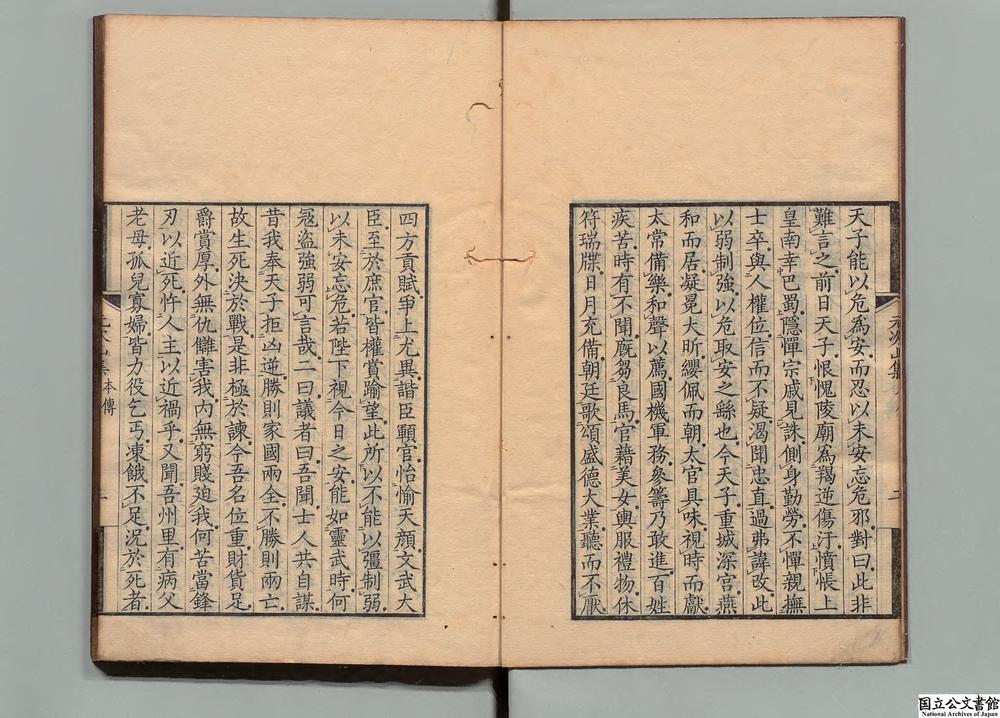 天子能以危爲安而忍以未安忘危邪對曰此非
難言之前日天子恨愧陵廟爲羯逆傷汙憤悵上
皇南幸巴蜀隱憚宗戚見誅側身勤勞不憚親撫
士卒與人權位信而不疑渴聞忠直過弗諱改此
以弱制強以危取安之繇也今天子重城深宮燕
和而居凝冕大昕纓佩而朝太官具味視時而獻
太常備樂和聲以薦國機軍務參籌乃敢進百姓
疾苦時有不聞廐芻良馬官藉美女輿服禮物休
符瑞牒日月充備朝廷歌頌盛德大業聽而不厭
四方貢賦爭上尤異諧臣顐官怡愉天顏文武大
臣至於庶官皆權賞踰望此所以不能以彊制弱
以未安忘危若陛下視今日之安能如靈武時何
寇盜強弱可言哉二曰議者曰吾聞士人共自謀
昔我奉天子拒凶逆勝則家國兩全不勝則兩亡
故生死決於戰是非極於諫今吾名位重財貨足
爵賞厚外無仇讎害我內無窮賤迫我何苦當鋒
刃以近死忤人主以近禍乎又聞吾州里有病父
老母孤兒寡婦皆力役乞丐凍餓不足況於死者
本傳
国立公文書館
National Archives of Japan